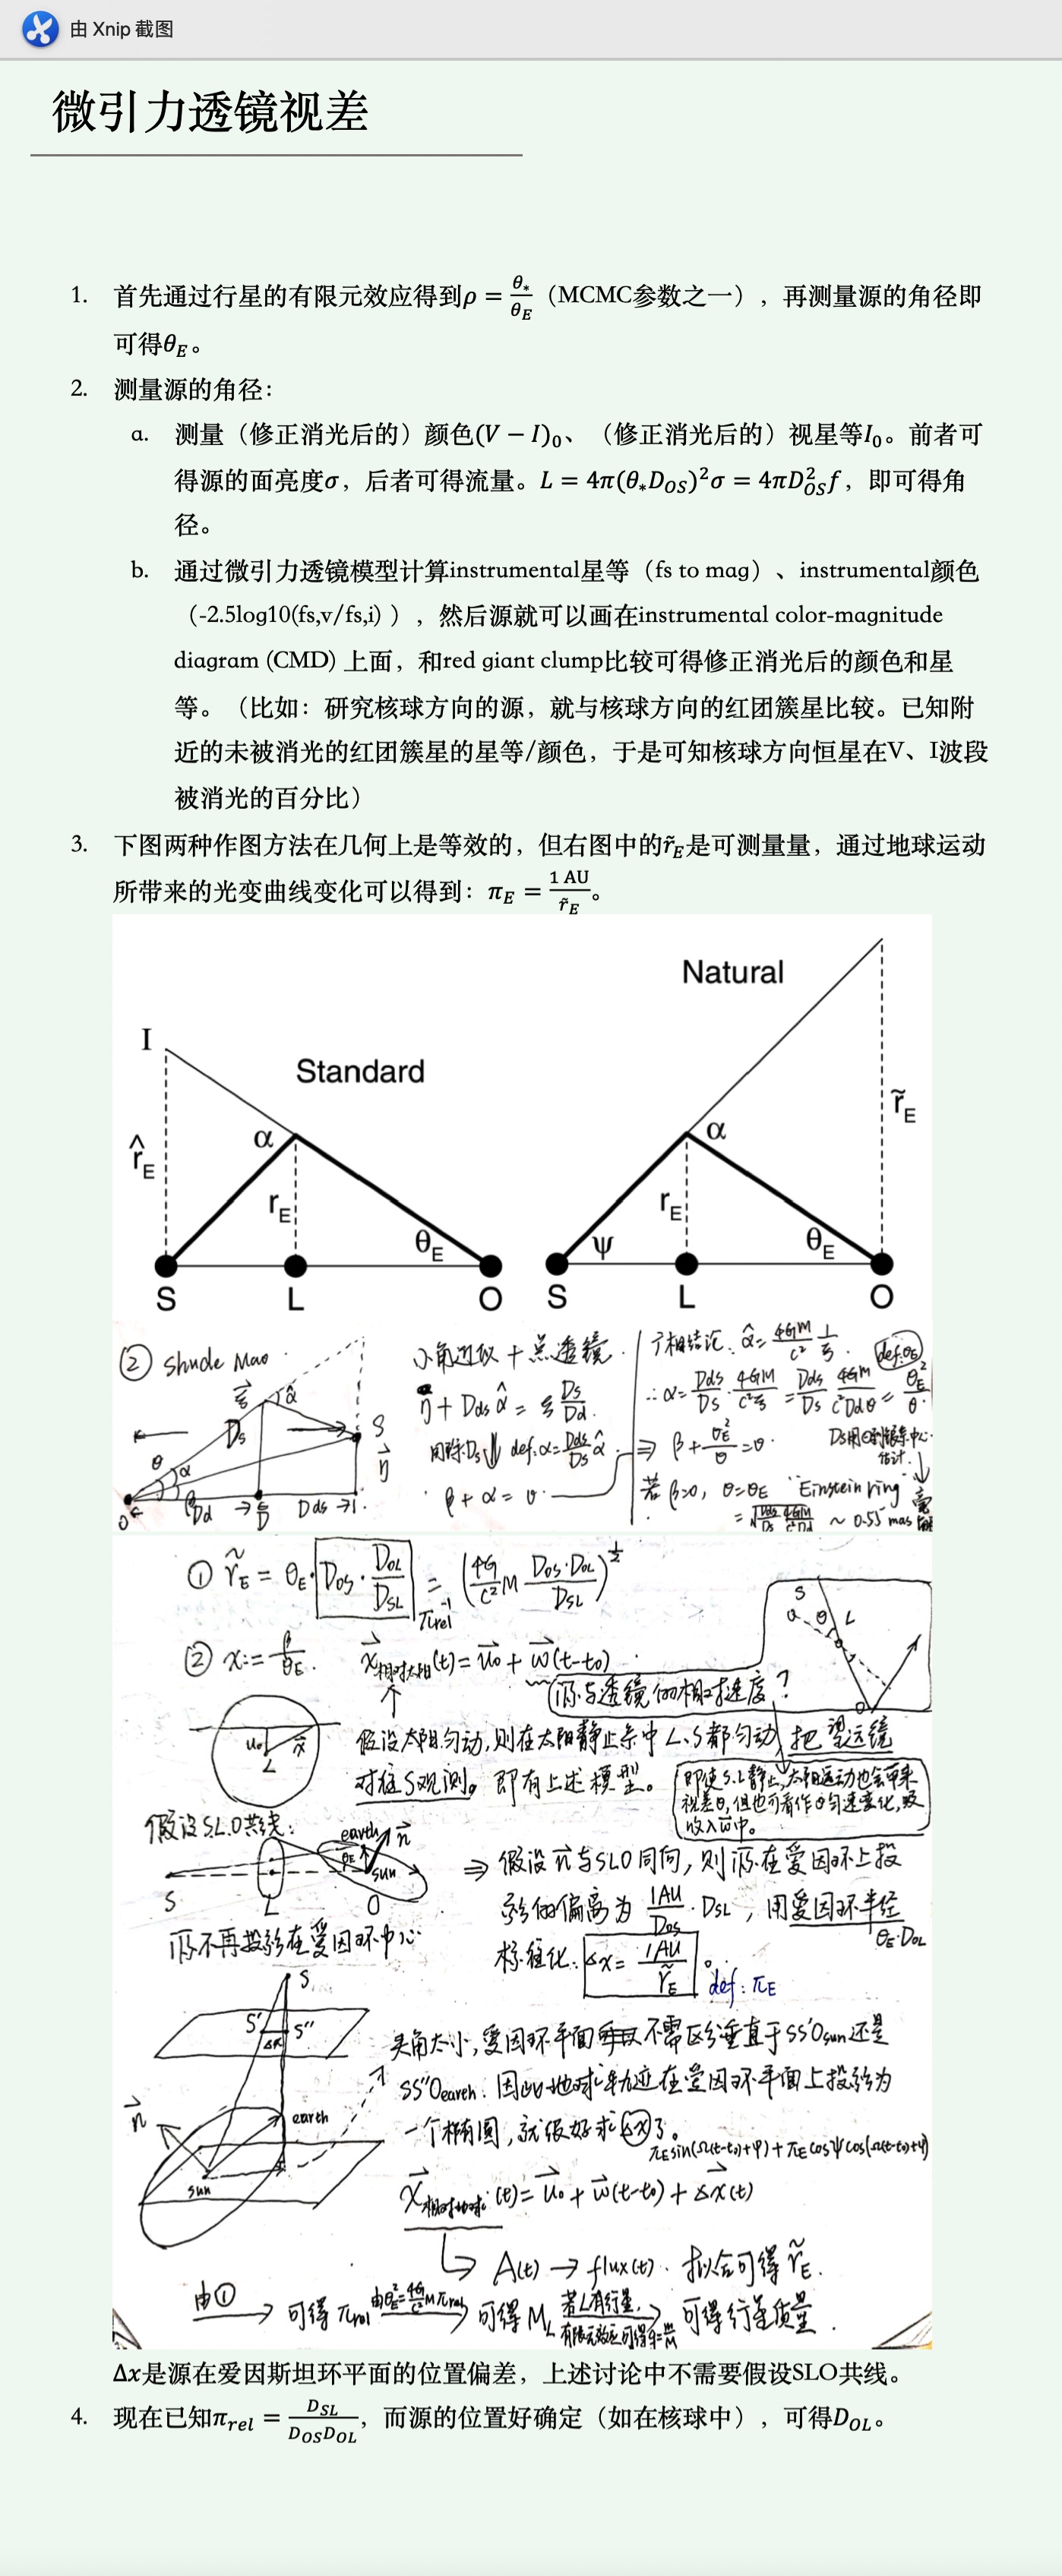 由 Xnip 截图
微引力透镜视差
1. 首先通过行星的有限元效应得到ρ = θ*/θE（MCMC参数之一），再测量源的角径即
可得θE。
2. 测量源的角径：
a. 测量（修正消光后的）颜色(V − I)0、（修正消光后的）视星等I0。前者可
得源的面亮度σ，后者可得流量。L = 4π(θ*DOS)²σ = 4πD²OSf，即可得角
径。
b. 通过微引力透镜模型计算instrumental星等（fs to mag）、instrumental颜色
（-2.5log10(fs,v/fs,i) ），然后源就可以画在instrumental color-magnitude
diagram (CMD) 上面，和red giant clump比较可得修正消光后的颜色和星
等。（比如：研究核球方向的源，就与核球方向的红团簇星比较。已知附
近的未被消光的红团簇星的星等/颜色，于是可知核球方向恒星在V、I波段
被消光的百分比）
3. 下图两种作图方法在几何上是等效的，但右图中的r̃E是可测量量，通过地球运动
所带来的光变曲线变化可以得到：πE = 1 AU/r̃E。
Natural
I
Standard
r̃E
α
α
r̂E
rE
rE
θE
ψ
θE
S
L
O
S
L
O
② Shude Mao
小角近似 + 点透镜.
广相结论: α̂ = 4GM/c² 1/ξ.
def: θE
η + Dds α̂ = ξ Ds/Dd.
∴ α = Dds/Ds · 4GM/c²ξ = Dds/Ds 4GM/c²Ddθ = θE²/θ.
同除Ds def: α = Dds/Ds α̂
⇒ β + θE²/θ = θ.
β + α = θ
若 β=0, θ=θE "Einstein ring"
~ 0.55 mas
① r̃E = θE · DOS · DOL/DSL = (4G/c² M DOS·DOL/DSL)^½
πrel⁻¹
② x := β/θE. x相对太阳(t) = u0 + w(t−t0)
源与透镜的相对速度？
假设太阳匀动, 则在太阳静止系中 L、S都匀动, 把望远镜
对住S观测。即有上述模型。
即使S、L静止, 太阳运动也会带来
视差, 但也可看作匀速变化, 吸
收入w中。
假设S、L、O共线:
earth
n
sun
S
L
O
⇒ 假设n与SLO同向, 则源在爱因环上投
影的偏离为 1AU/DOS · DSL, 用爱因环半径
θE·DOL
源不再投影在爱因环中心
标准化. Δx = 1AU/r̃E。
def: πE
S
S'
S''
Δx
夹角太小, 爱因环平面不需区分垂直于SS'Osun还是
SS''Oearth. 因此地球轨迹在爱因环平面上投影为
n
earth
sun
一个椭圆, 就很好求Δx了。
πE sin(Ω(t−t0)+φ) + πE cosψ cos(Ω(t−t0)+φ)
x相对地球(t) = u0 + w(t−t0) + Δx(t)
A(t) → flux(t). 拟合可得 r̃E.
由① → 可得 πrel 由θE²=4G/c² M πrel → 可得 ML 若L有行星, 有限元效应可得q=m/M → 可得行星质量.
Δx是源在爱因斯坦环平面的位置偏差，上述讨论中不需要假设SLO共线。
4. 现在已知πrel = DSL/DOSDOL，而源的位置好确定（如在核球中），可得DOL。